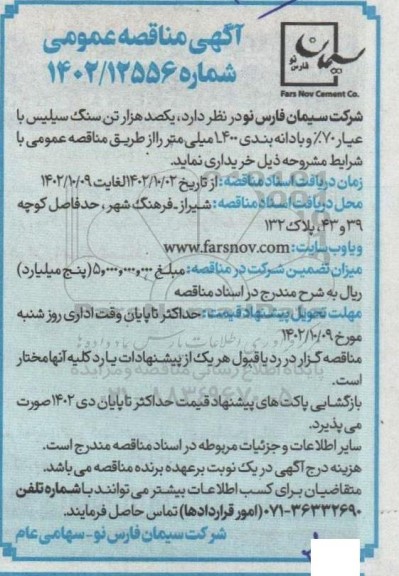 آگهی مناقصه عمومی
شماره ۱۴۰۲/۱۲۵۵۶
سیمان
فارس نو
Fars Nov Cement Co.
شرکت سیمان فارس نو در نظر دارد، یکصد هزار تن سنگ سیلیس با
عیار ۷۰٪ و با دانه بندی ۴۰۰ـ۱ میلی متر را از طریق مناقصه عمومی با
شرایط مشروحه ذیل خریداری نماید.
زمان دریافت اسناد مناقصه: از تاریخ ۱۴۰۲/۱۰/۰۲ لغایت ۱۴۰۲/۱۰/۰۹
محل دریافت اسناد مناقصه: شیراز ـ فرهنگ شهر ، حدفاصل کوچه
۳۹ و ۴۳، پلاک ۱۳۲
و یا وب سایت: www.farsnov.com
میزان تضمین شرکت در مناقصه: مبلغ ۵,۰۰۰,۰۰۰,۰۰۰ (پنج میلیارد)
ریال به شرح مندرج در اسناد مناقصه
مهلت تحویل پیشنهاد قیمت: حداکثر تا پایان وقت اداری روز شنبه
مورخ ۱۴۰۲/۱۰/۰۹
مناقصه گزار در رد یا قبول هر یک از پیشنهادات یا رد کلیه آنها مختار
است.
بازگشایی پاکت های پیشنهاد قیمت حداکثر تا پایان دی ۱۴۰۲ صورت
می پذیرد.
سایر اطلاعات و جزئیات مربوطه در اسناد مناقصه مندرج است.
هزینه درج آگهی در یک نوبت برعهده برنده مناقصه می باشد.
متقاضیان برای کسب اطلاعات بیشتر می توانند با شماره تلفن
۰۷۱-۳۶۳۳۲۶۹۰ (امور قراردادها) تماس حاصل فرمایند.
شرکت سیمان فارس نو - سهامی عام